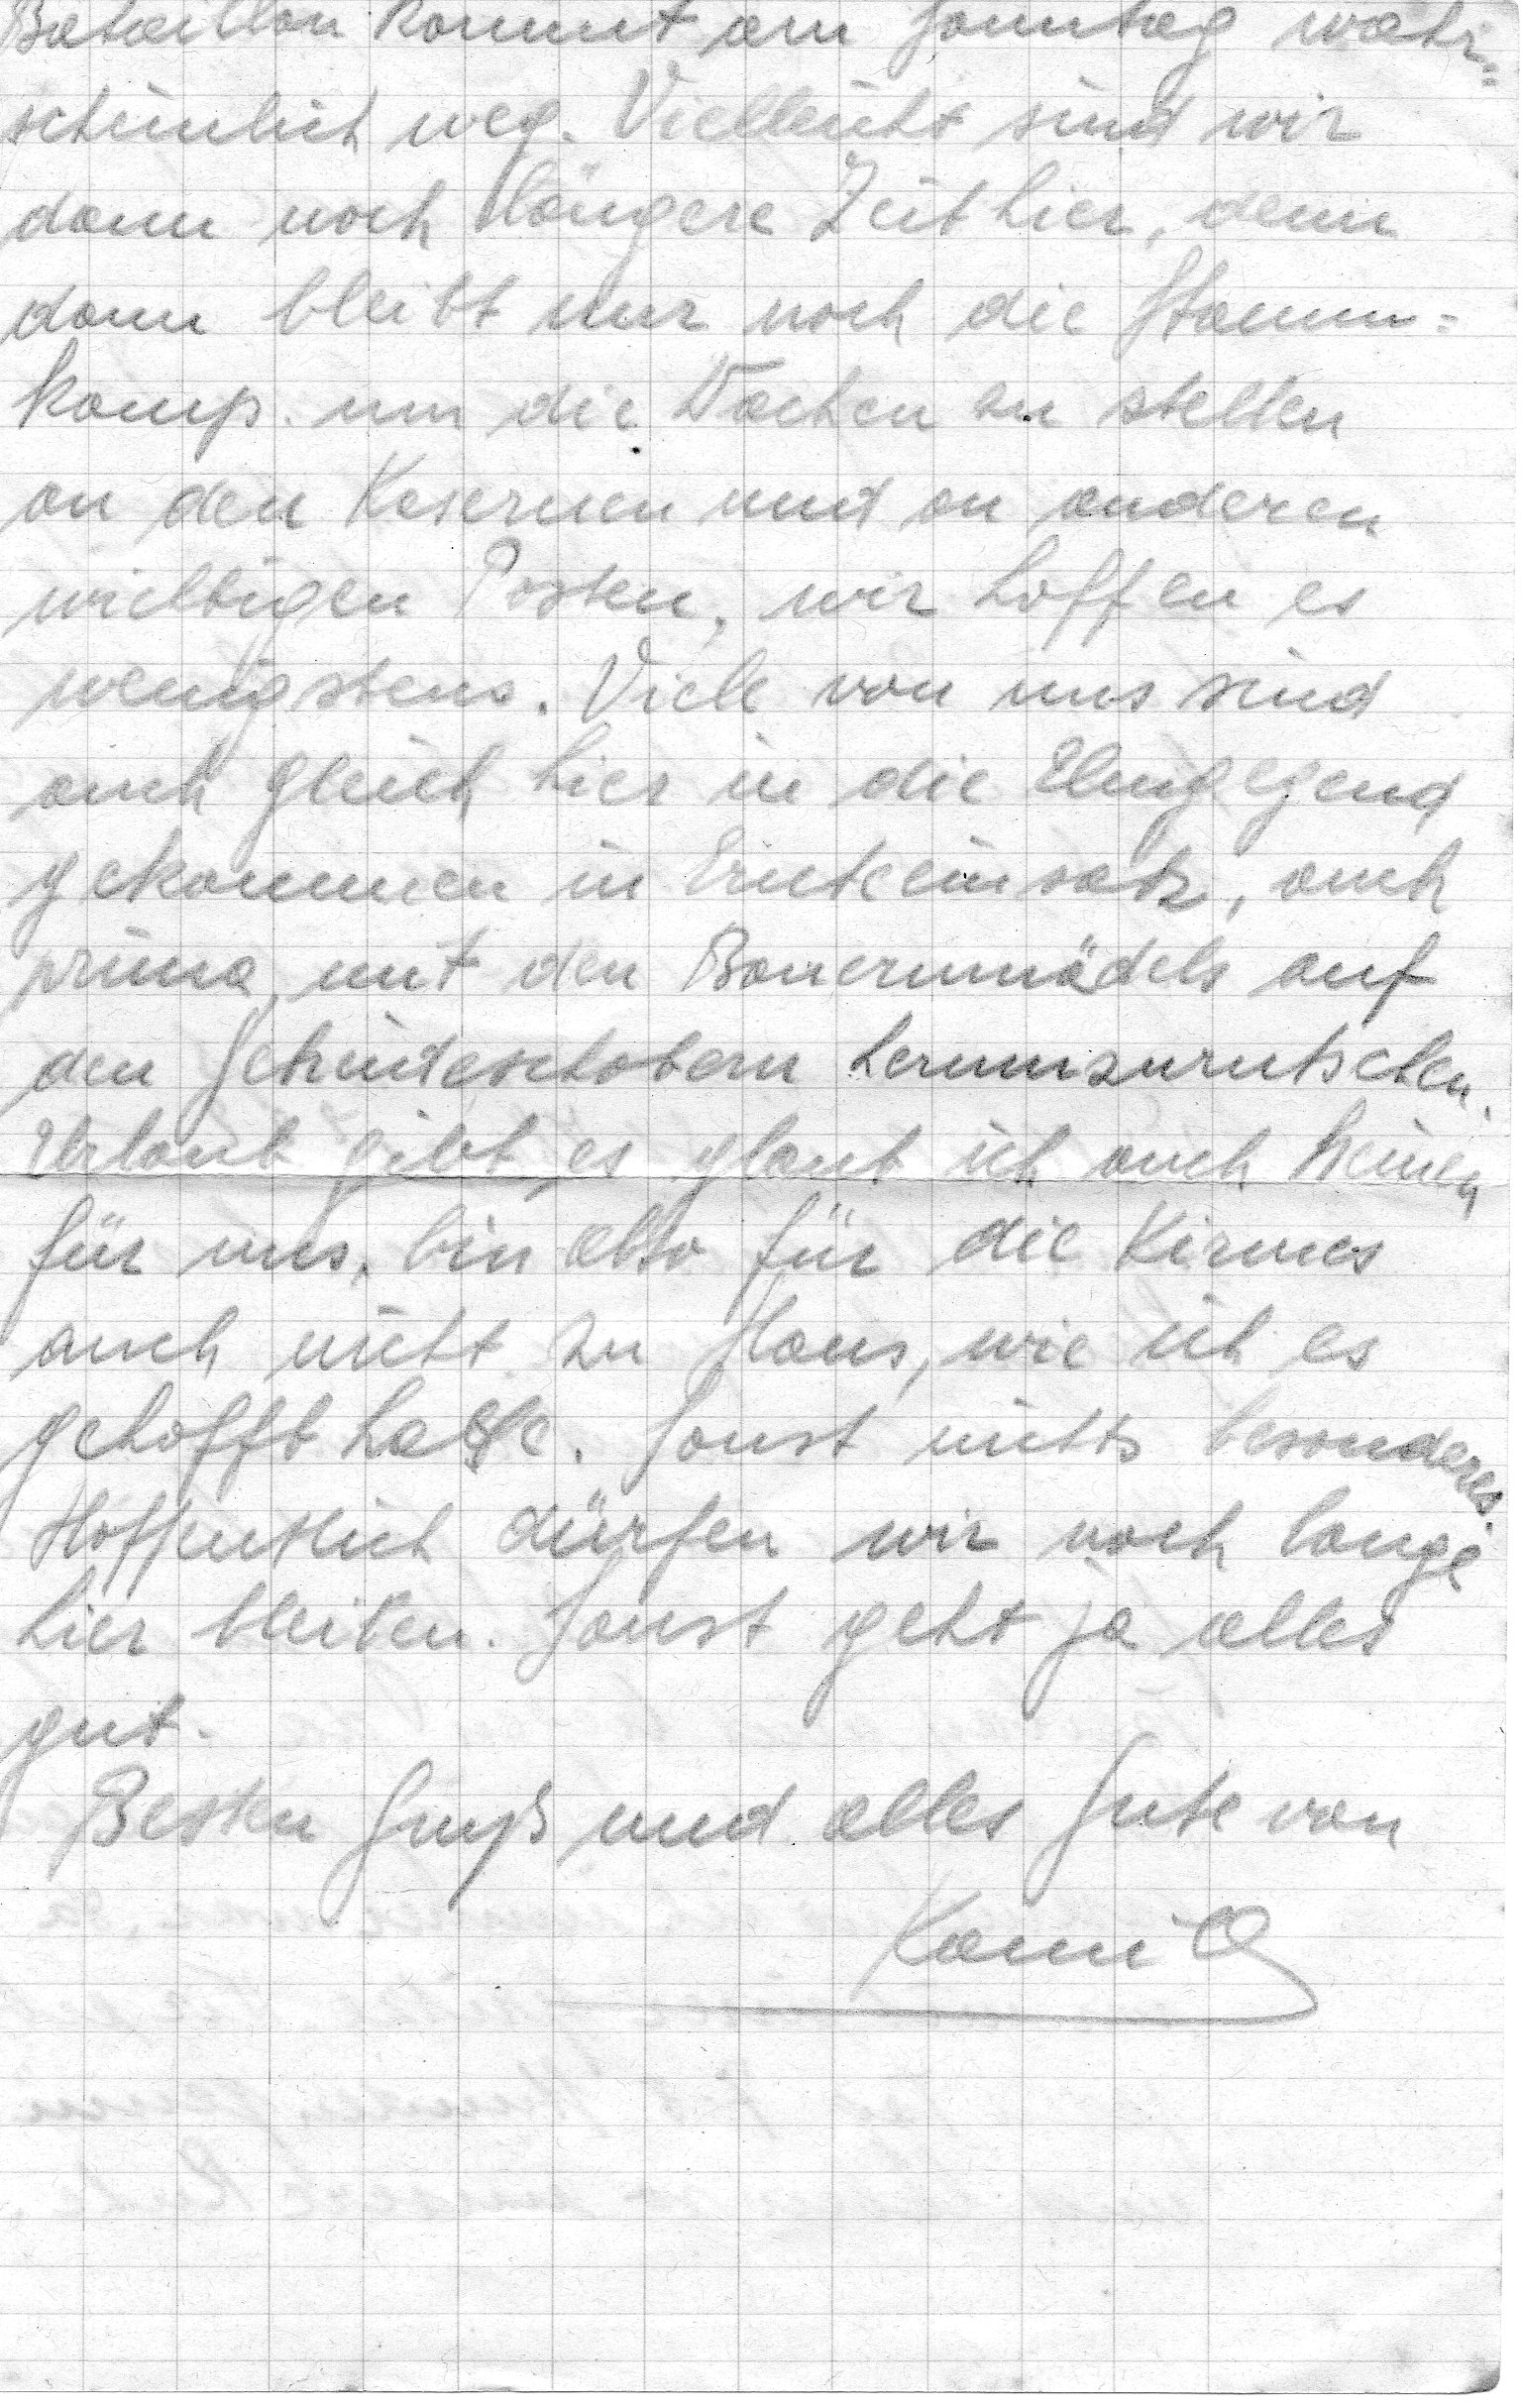 Bataillon kommt am Sonntag wahr=
scheinlich weg. Vielleicht sind wir
dann noch längere Zeit hier, denn
dann bleibt nur noch die Stamm=
komp. um die Wachen zu stellen
an den Kasernen und an anderen
wichtigen Posten, wir hoffen es
wenigstens. Viele von uns sind
auch gleich hier in die Umgegend
gekommen in Ernteeinsatz, auch
prima, mit den Bauernmädels auf
den Getreideschobern herumzurutschen.
Urlaub gibt es glaub ich auch keinen
für uns, bin also für die Kirmes
auch nicht zu Haus, wie ich es
gehofft hatte. Sonst nichts besonderes.
Hoffentlich dürfen wir noch lange
hier bleiben. Sonst geht ja alles
gut.
Besten Gruß und alles Gute von
Kamill